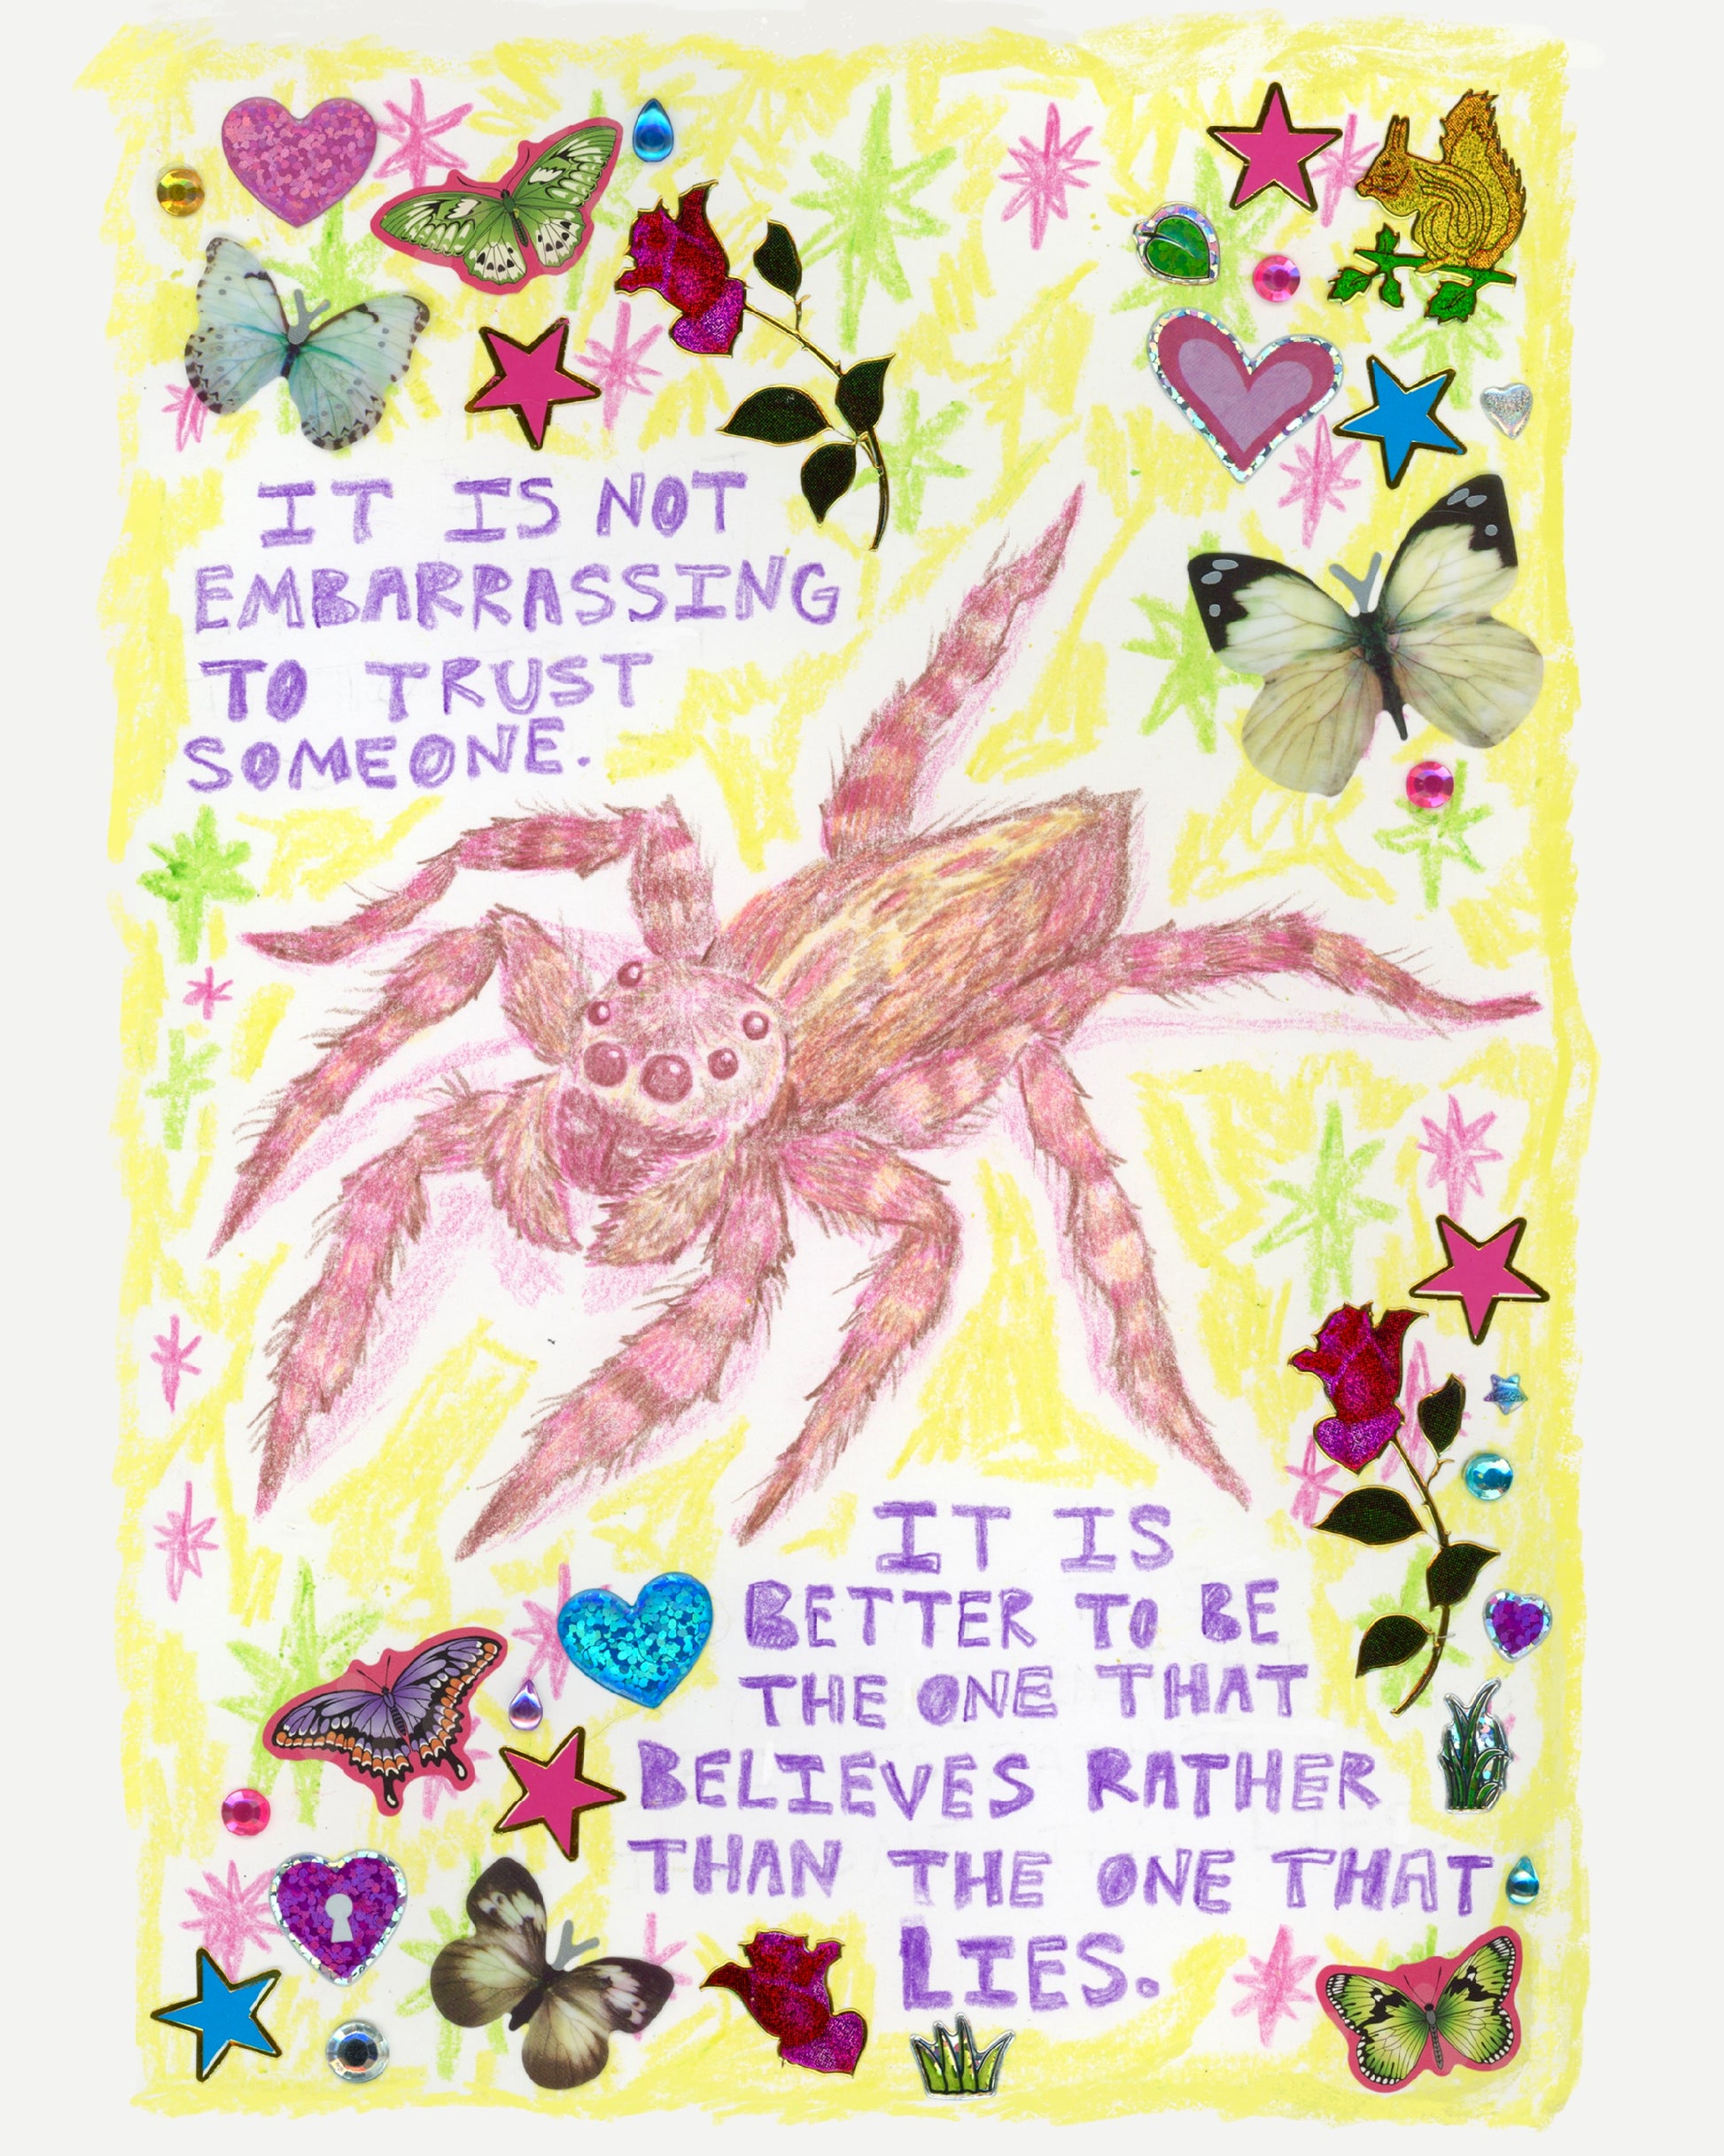 IT IS NOT
EMBARRASSING
TO TRUST
SOMEONE.
IT IS
BETTER TO BE
THE ONE THAT
BELIEVES RATHER
THAN THE ONE THAT
LIES.